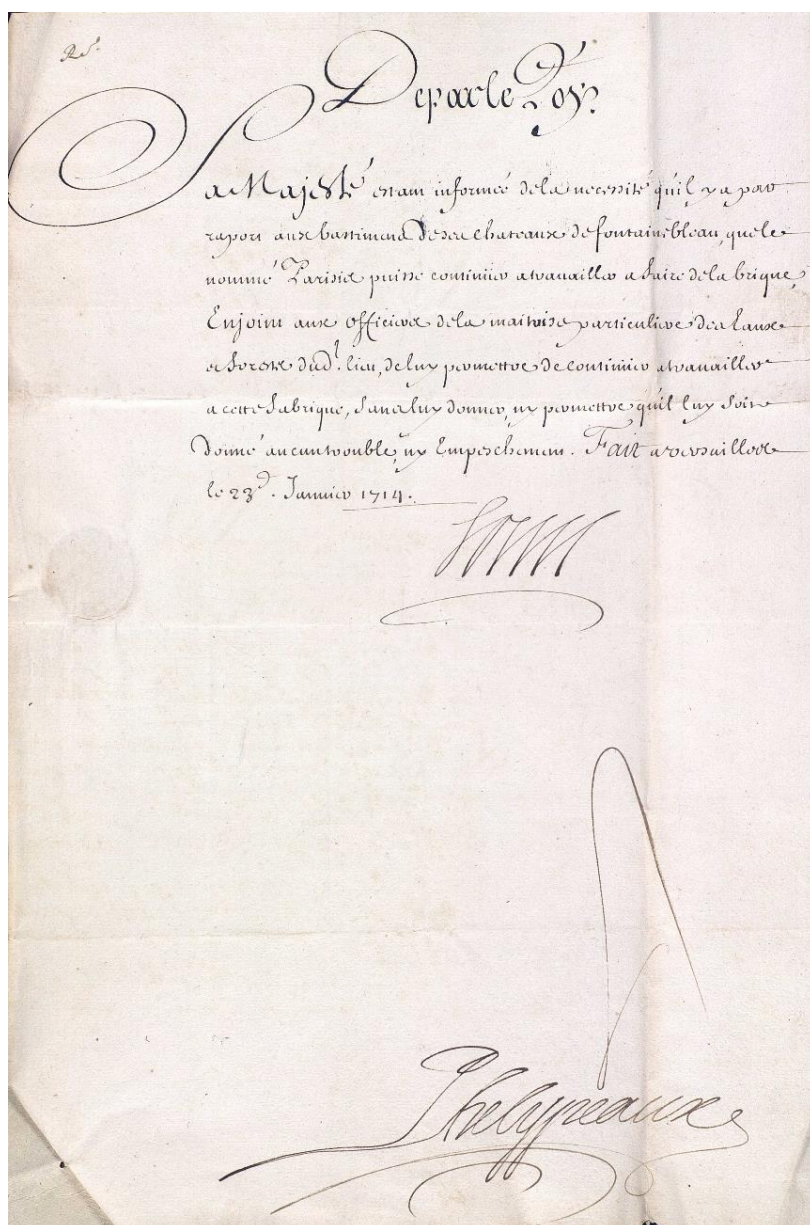 De par le Roy
Sa Majesté estant informée de la necessité qu'il y a par
raport aux bastimens de ses chateaux de fontainebleau, que le
nommé Parisis puisse continuer a travailler a faire de la brique,
Enjoint aux officiers de la maitrise particuliere des Eaux
et forests dud.t lieu, de luy permettre de continuer a travailler
a cette fabrique, sans luy donner, ny permettre qu'il luy soit
donné aucun trouble, ny Empeschement. Fait a versailles
le 23.d Janvier 1714.
Louis
Phelypeaux